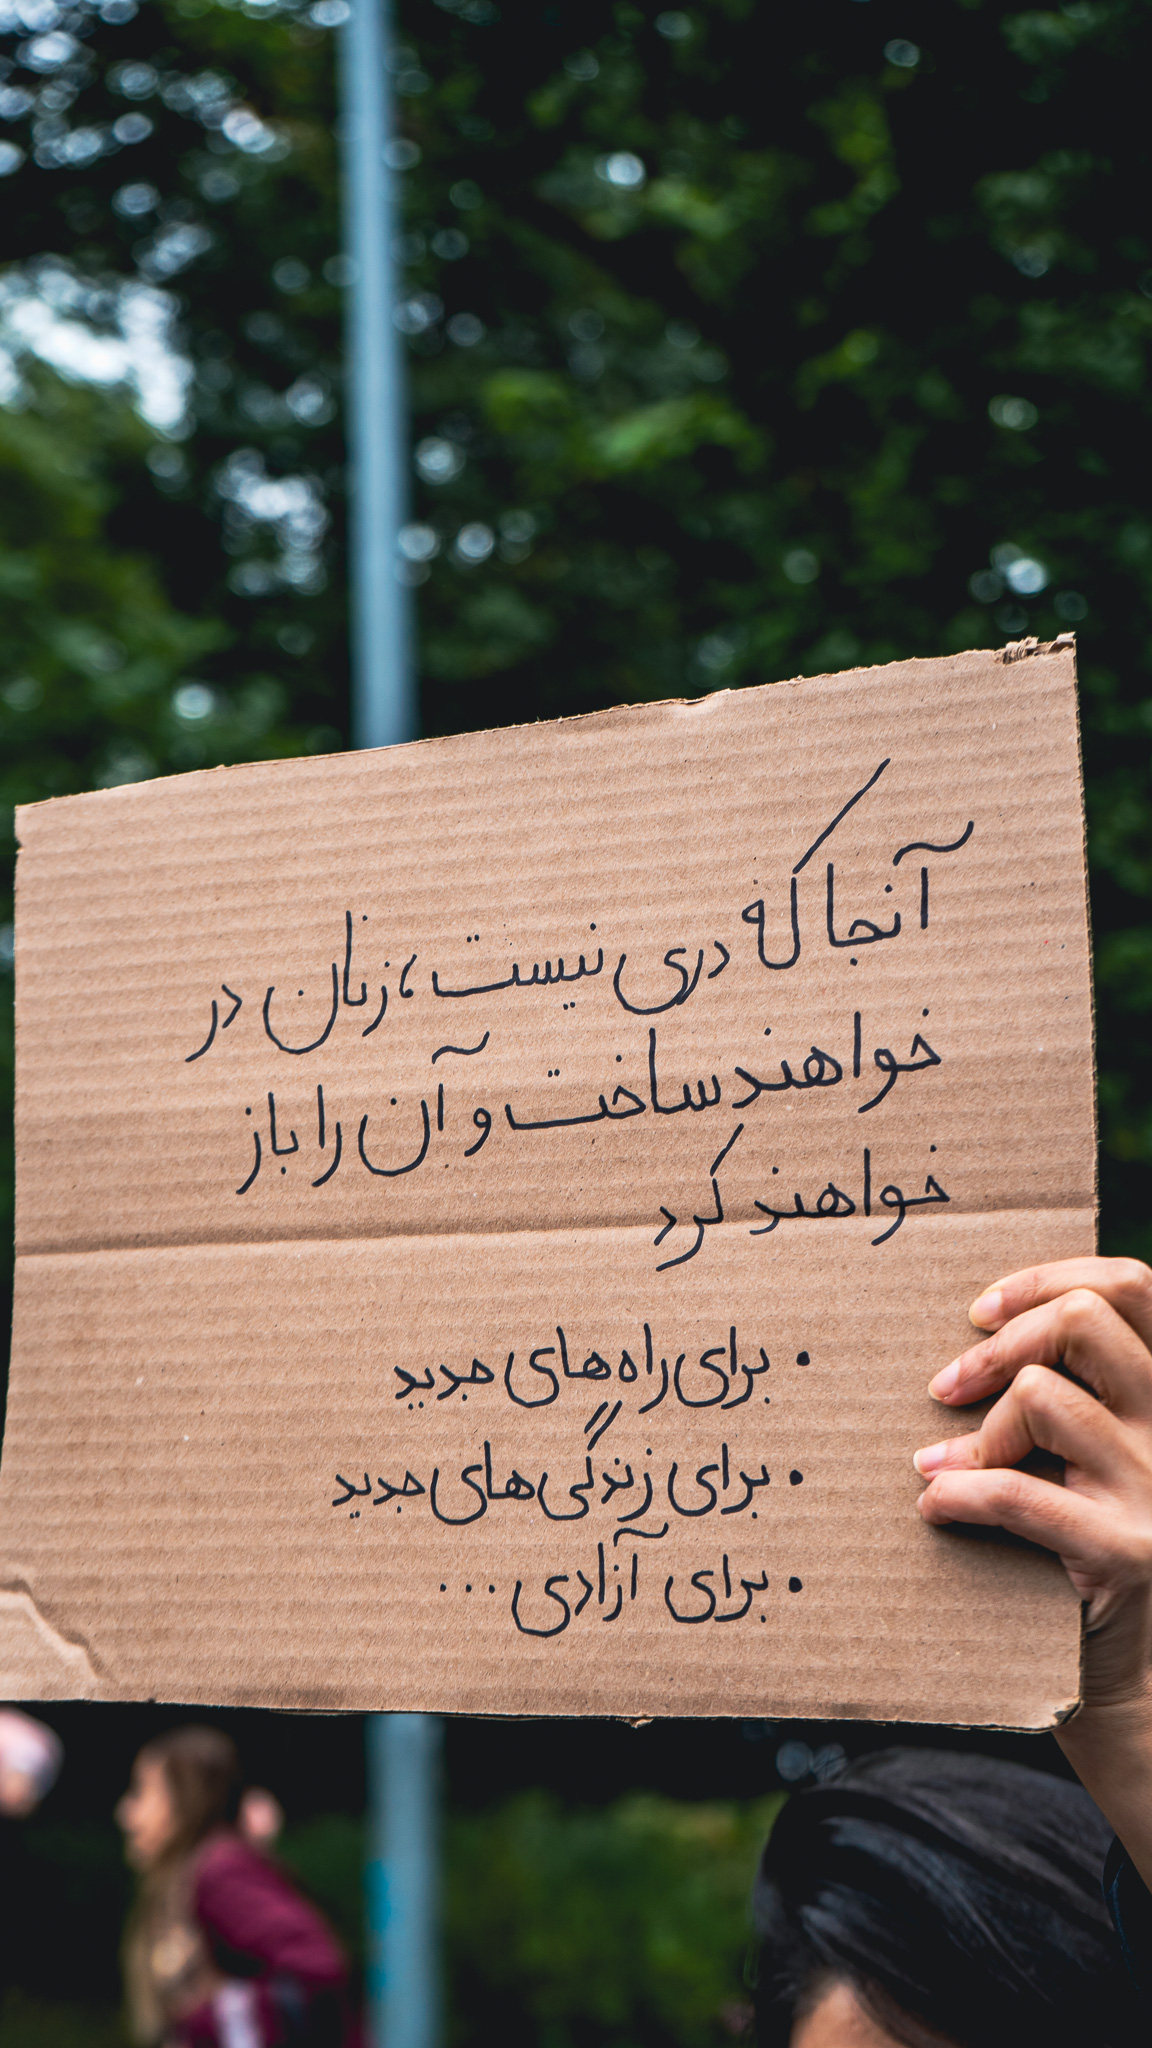 آنجا که دری نیست، زنان در
خواهند ساخت و آن را باز
خواهند کرد
• برای راه‌های جدید
• برای زندگی‌های جدید
• برای آزادی ...